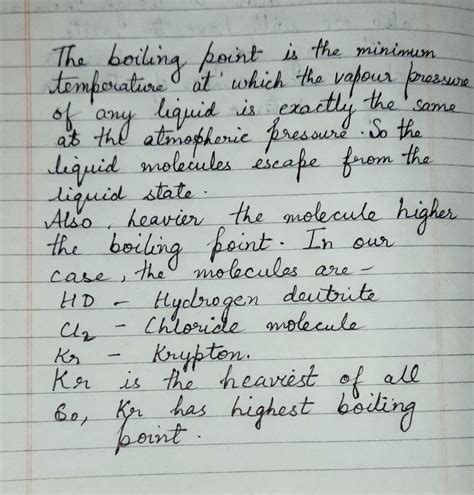 The boiling point is the minimum
temperature at which the vapour pressure
of any liquid is exactly the same
as the atmopheric pressure. So the
liquid molecules escape from the
liquid state.
Also, heavier the molecule higher
the boiling point. In our
case, the molecules are -
HD - Hydrogen deutrite
Cl2 - Chloride molecule
Kr - Krypton.
Kr is the heaviest of all
So, Kr has highest boiling
point.